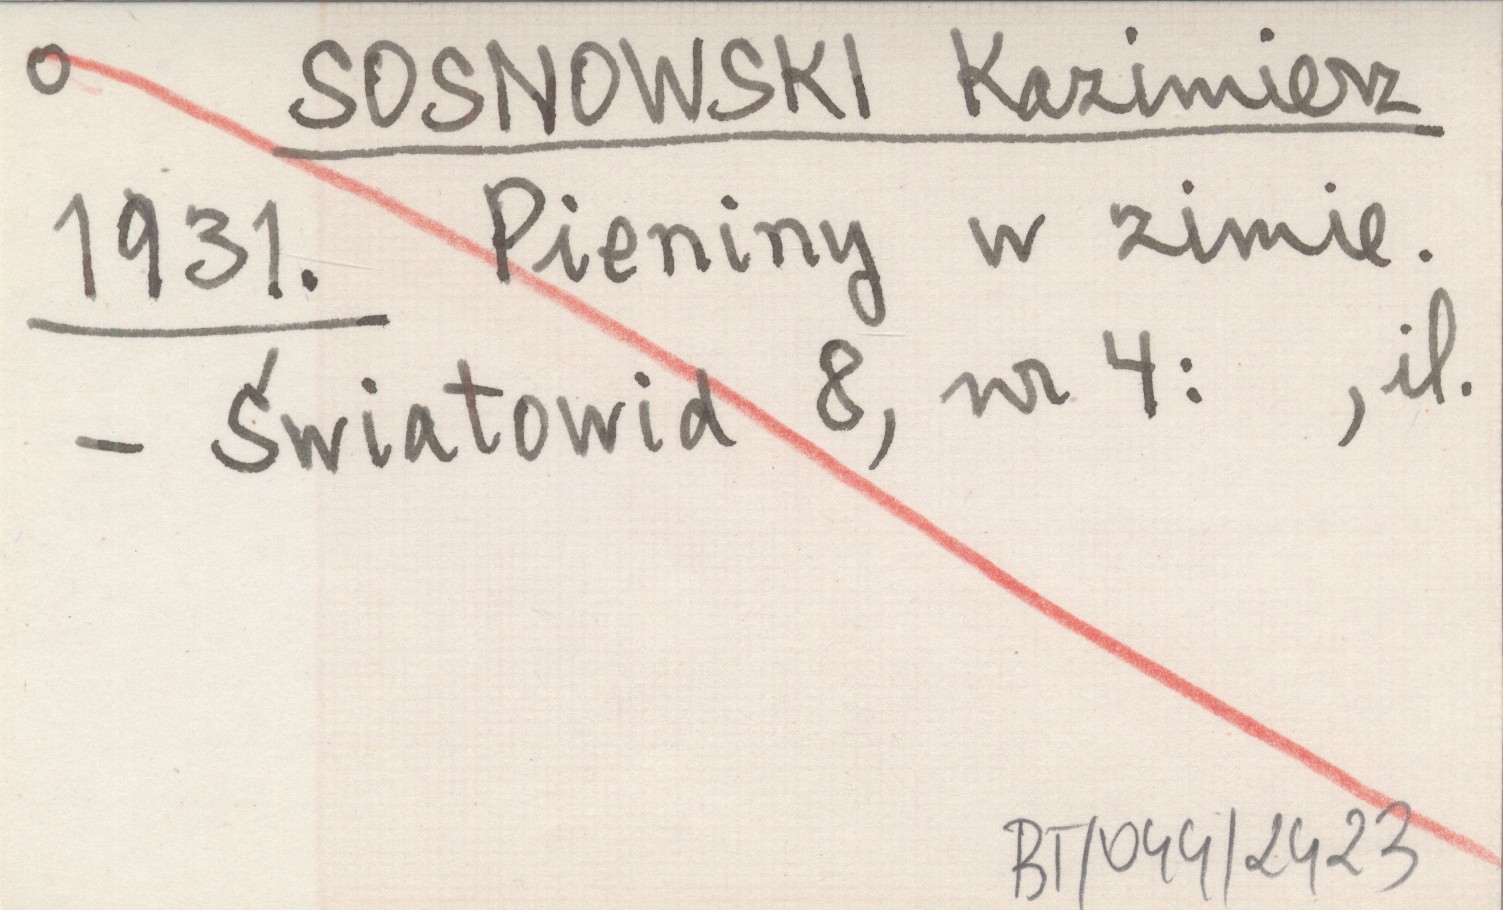 o SOSNOWSKI Kazimierz
1931. Pieniny w zimie.
- Światowid 8, nr 4: , il.
BT/044/2423